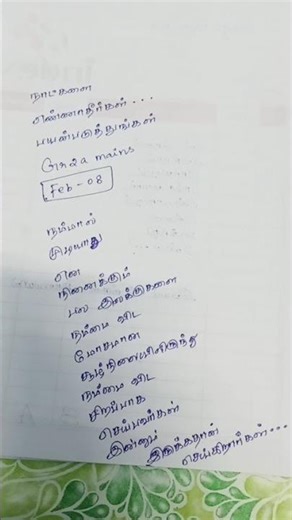 நாட்களை
எண்ணாதீர்கள்...
பயன்படுத்துங்கள்
Gr2&2a mains
Feb - 08
நம்மால்
முடியாது
என
நினைக்கும்
பல இலக்குகளை
நம்மை விட
மோசமான
சூழ்நிலையிலிருந்து
நம்மை விட
சிறப்பாக
செய்பவர்கள்
இன்னும் இருக்கதான்
செய்கிறார்கள்...